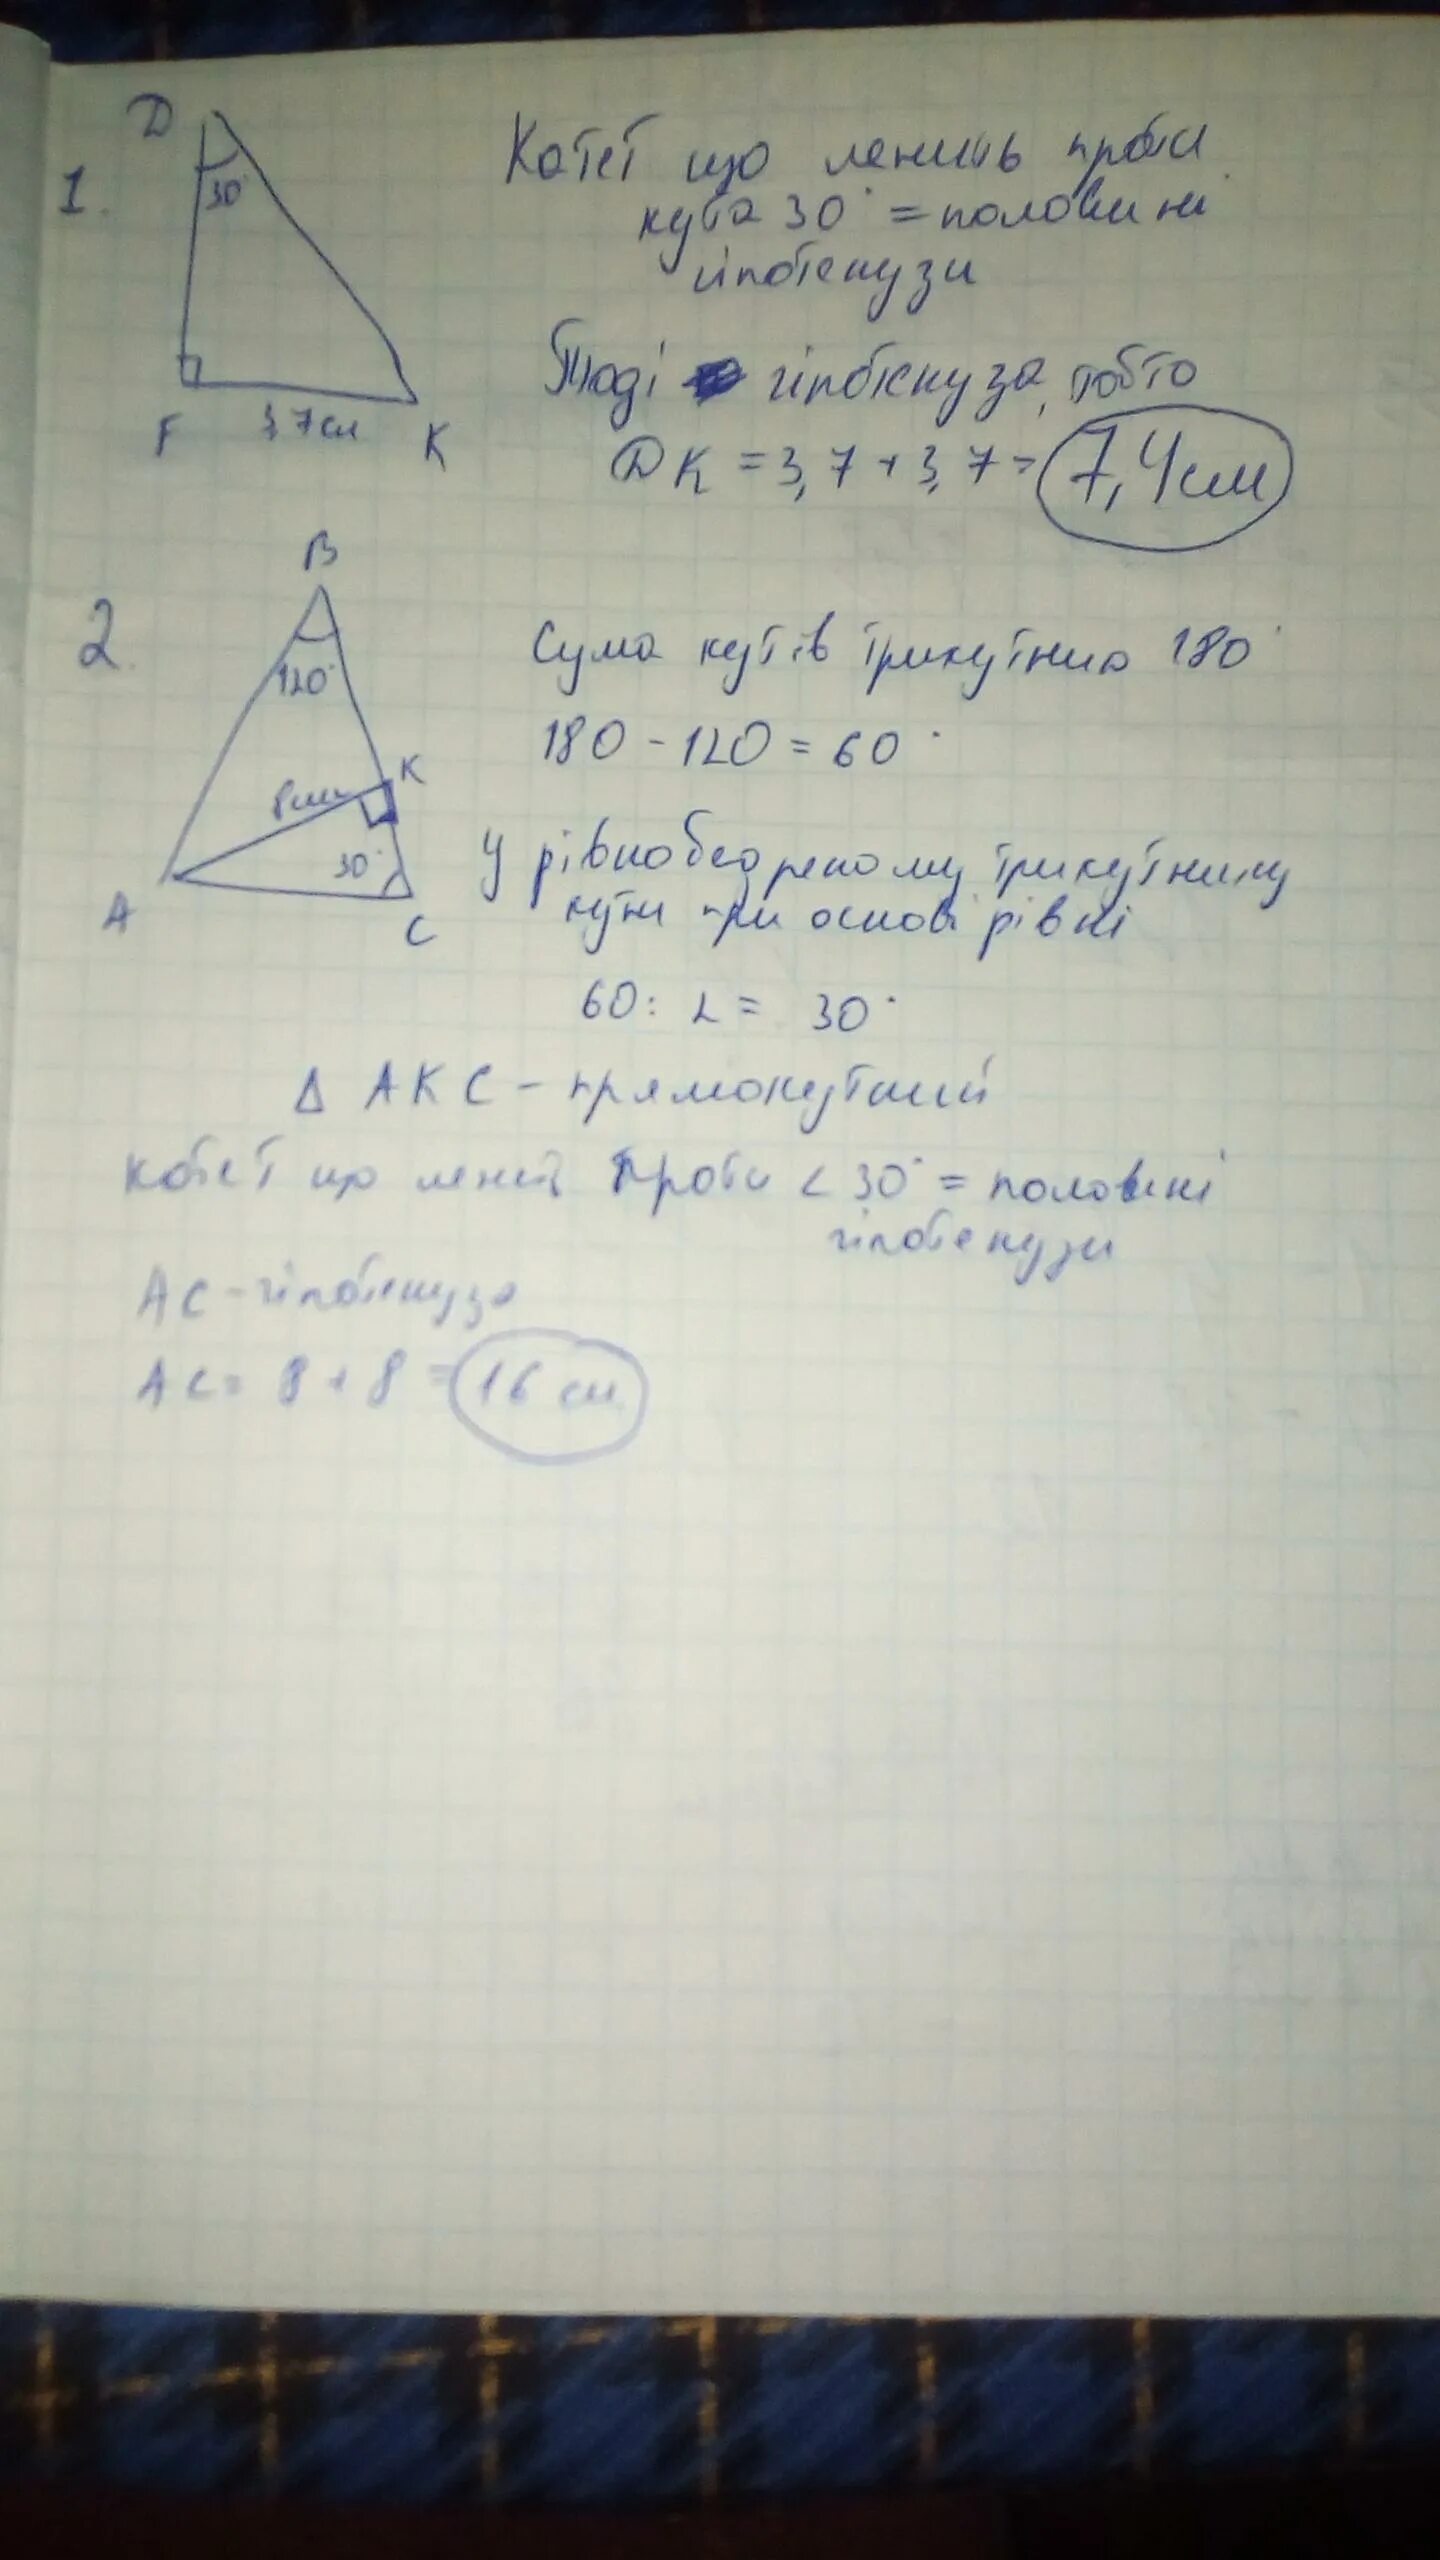 1.
D
30°
F
3,7 см
K
Катет що лежить проти
кута 30° = половині
гіпотенузи
Тоді гіпотенуза, тобто
DK = 3,7 + 3,7 = 7,4 см
2.
B
120°
K
8 см
30°
A
C
Сума кутів трикутника 180°
180 - 120 = 60°
У рівнобедреному трикутнику
кути при основі рівні
60 : 2 = 30°
Δ AKC - прямокутний
катет що лежить проти < 30° = половині
гіпотенузи
AC - гіпотенуза
AC = 8 + 8 = 16 см